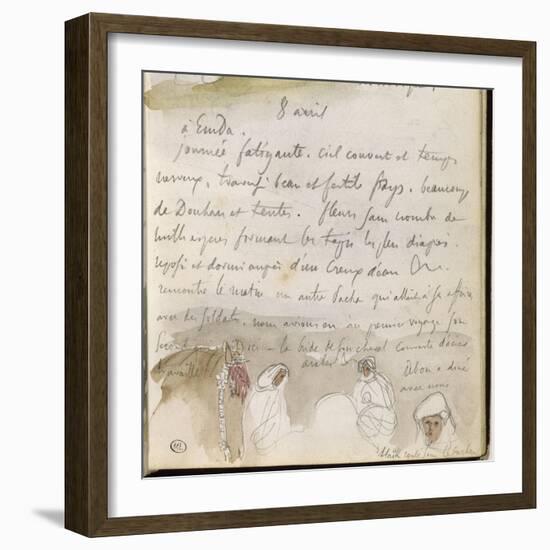 8 avril
à Emda.
journée fatigante. ciel couvert et temps
nerveux. traversé beau et fertile pays. beaucoup
de Douhars et tentes. fleurs sans nombre de
mille especes formant les tapis les plus diaprés.
reposé et dormi auprès d'un creux d'eau
rencontré le matin un autre Pacha qui allait à
avec des soldats. nous avions eu au premier voyage
Second la bride de son cheval couverte d'acier
travaillé
arabe
Abou a diné
avec nous